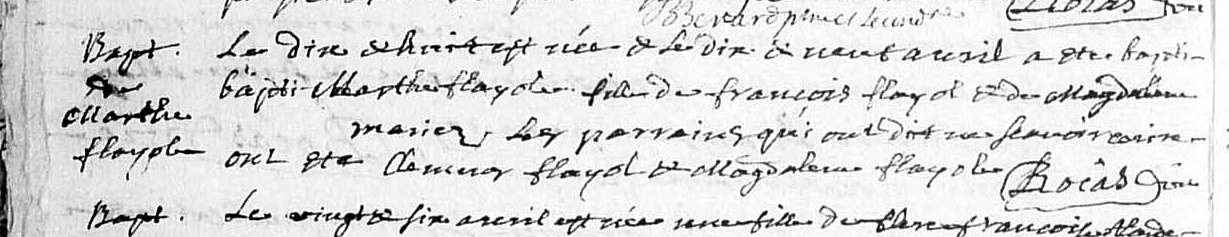 Berard Rocas
Bapt. Le dix & huit est née & le dix & neuf avril a ete bapti-
de bapti Marthe flayole fille de françois flayol & de Magdalene
Marthe mariez, Les parrains qui ont dit ne scavoir ecrire
flayole ont ete Clemens flayol & Magdalene flayole Rocas
Bapt. Le vingt & six avril est née une fille de françois